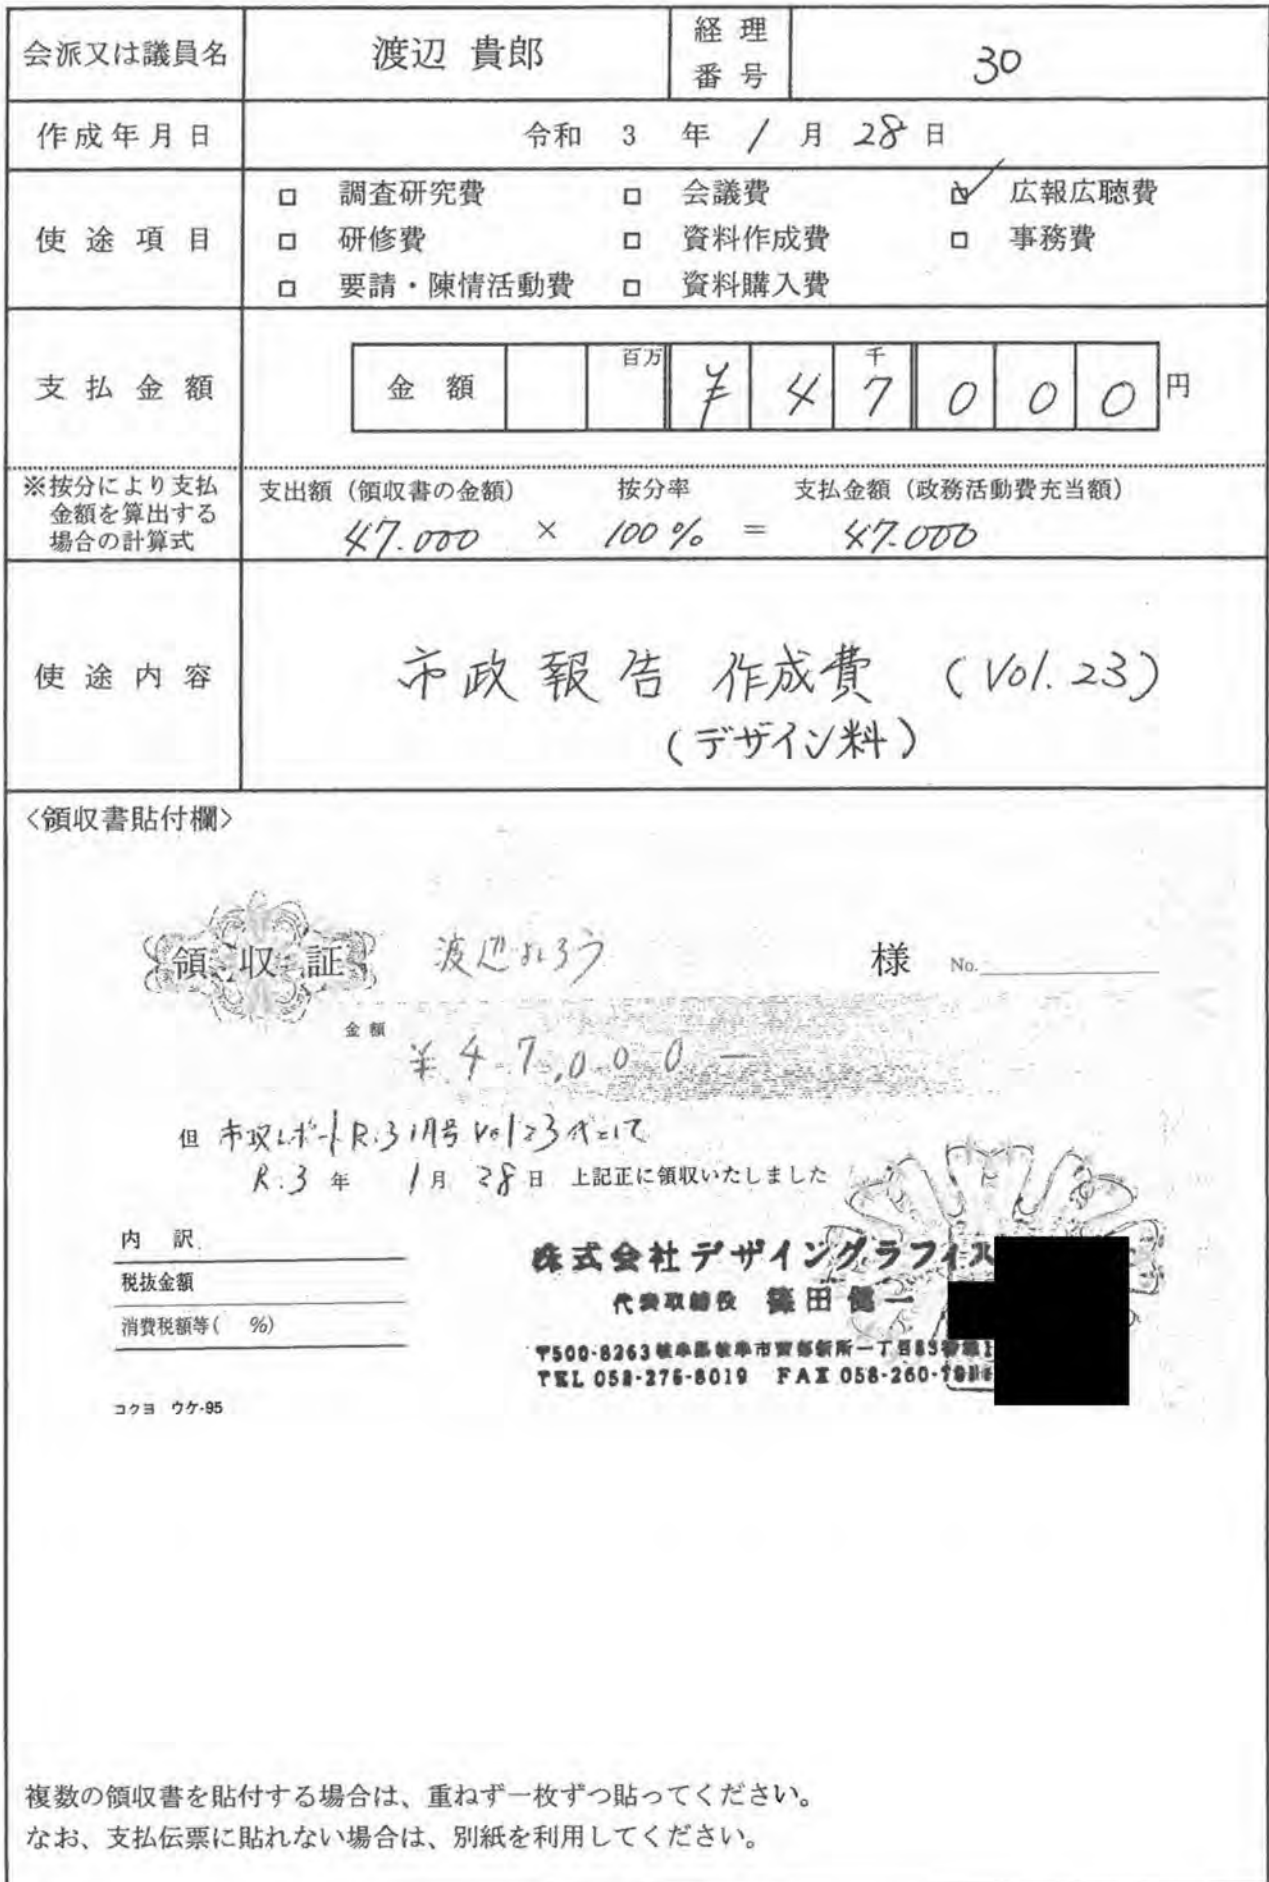 会派又は議員名 渡辺 貴郎 経理番号 30
作成年月日 令和 3 年 1 月 28 日
使途項目
□ 調査研究費 □ 会議費 ☑ 広報広聴費
□ 研修費 □ 資料作成費 □ 事務費
□ 要請・陳情活動費 □ 資料購入費
支払金額 金額 百万 千 ¥ 4 7 0 0 0 円
※按分により支払金額を算出する場合の計算式
支出額(領収書の金額) 按分率 支払金額(政務活動費充当額)
47.000 × 100% = 47.000
使途内容 市政報告 作成費 (Vol.23)
(デザイン料)
<領収書貼付欄>
領収証 渡辺 様 No.
金額 ¥47,000-
但 市政レポート R.3 1月号 Vol23 代として
R.3 年 1月 28日 上記正に領収いたしました
内 訳
税抜金額
消費税額等( %)
コクヨ ウケ-95
株式会社デザイングラフィス
代表取締役 篠田健一
〒500-8263 岐阜県岐阜市 新所一丁目83
TEL 058-276-8019 FAX 058-260-
複数の領収書を貼付する場合は、重ねず一枚ずつ貼ってください。
なお、支払伝票に貼れない場合は、別紙を利用してください。